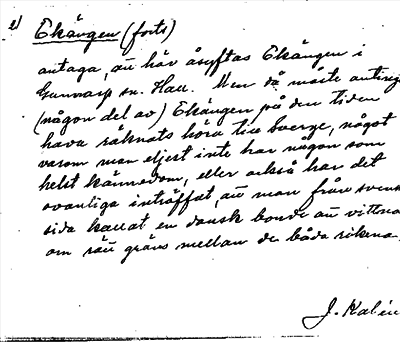 2) Ekängen (forts)
antaga, att här åsyftas Ekängen i
Gunnarp sn. Hall. Men då måste anting
(någon del av) Ekängen på den tiden
hava räknats höra till Sverge, något
varom man eljest inte har någon som
helst kännedom, eller också har det
ovanliga inträffat, att man från svensk
sida kallat en dansk bonde att vittna
om rätt gräns mellan de båda rikena.
J. Kalén